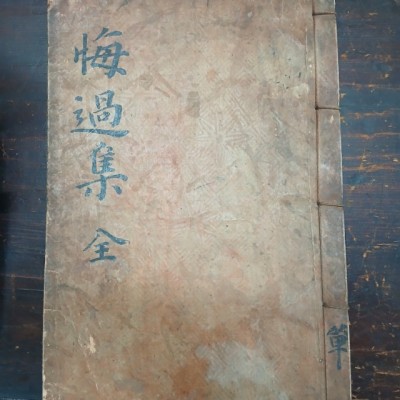 悔過集 全
單